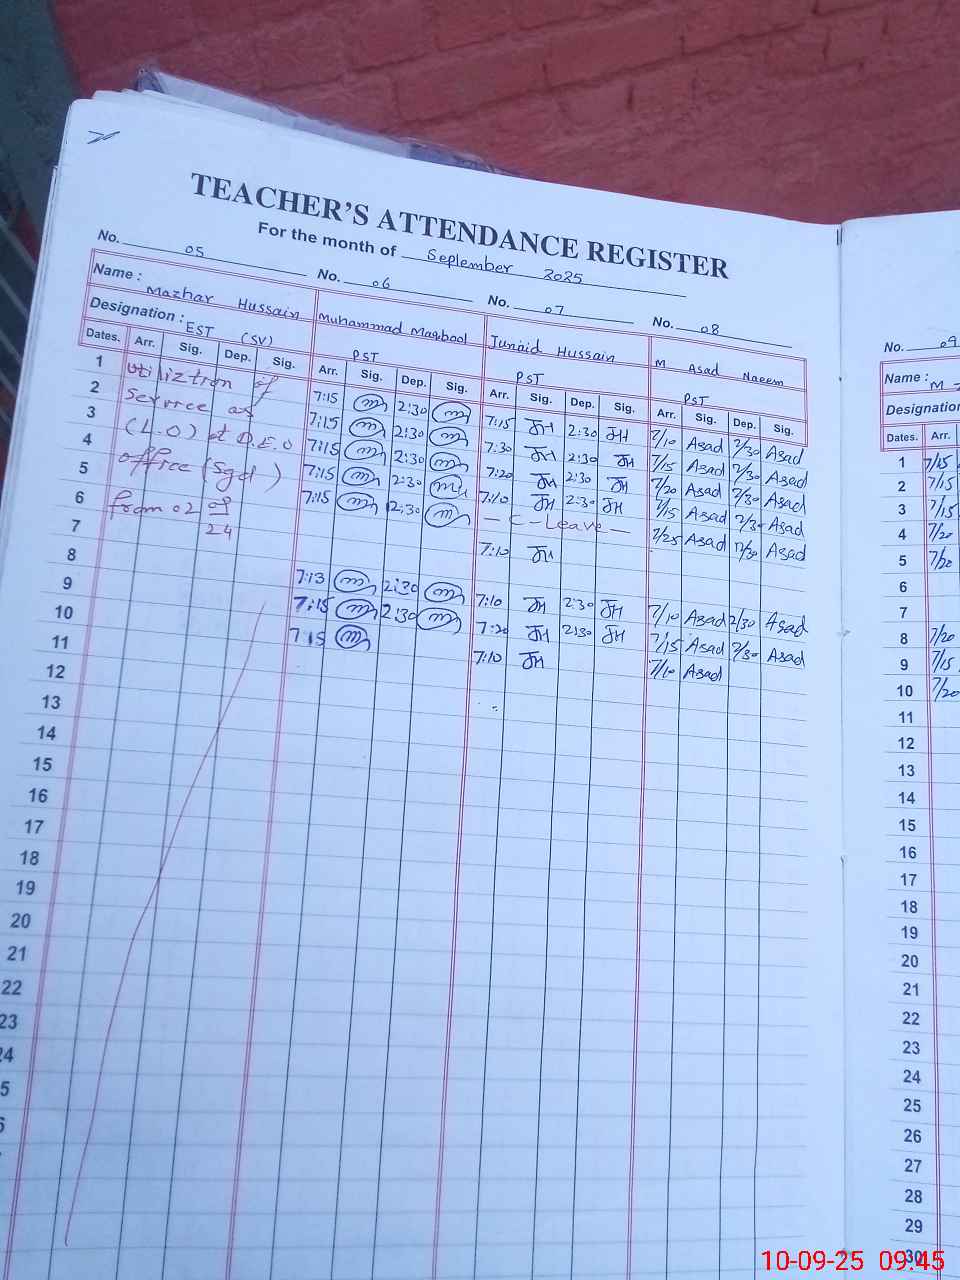 TEACHER'S ATTENDANCE REGISTER
For the month of September 2025
No. 05 No. 06 No. 07 No. 08
Name : Mazhar Hussain Muhammad Maqbool Junaid Hussain M Asad Naeem
Designation : EST (SV) PST PST PST
Dates. Arr. Sig. Dep. Sig. Arr. Sig. Dep. Sig. Arr. Sig. Dep. Sig. Arr. Sig. Dep. Sig.
Utiliztion of
Service as
(L.O) at D.E.O
office (Sgd)
from 02 09
24
1 7:15 2:30 7:15 JH 2:30 JH 7/10 Asad 2/30 Asad
2 7:15 2:30 7:30 JH 2:30 JH 7/15 Asad 2/30 Asad
3 7:15 2:30 7:20 JH 2:30 JH 7/20 Asad 2/30 Asad
4 7:15 2:30 7:10 JH 2:30 JH 7/15 Asad 2/30 Asad
5 7:15 12:30 — C-Leave — 7/25 Asad 12/30 Asad
6 7:10 JH
7
8 7:13 2:30 7:10 JH 2:30 JH 7/10 Asad 2/30 Asad
9 7:15 2:30 7:20 JH 2:30 JH 7/15 Asad 2/30 Asad
10 7:15 7:10 JH 7/10 Asad
11
12
13
14
15
16
17
18
19
20
21
22
23
24
5
6
No. 09
Name : M
Designation
Dates. Arr.
1 7/15
2 7/15
3 7/15
4 7/20
5 7/20
6
7
8 7/20
9 7/15
10 7/20
11
12
13
14
15
16
17
18
19
20
21
22
23
24
25
26
27
28
29
30
10-09-25 09:45